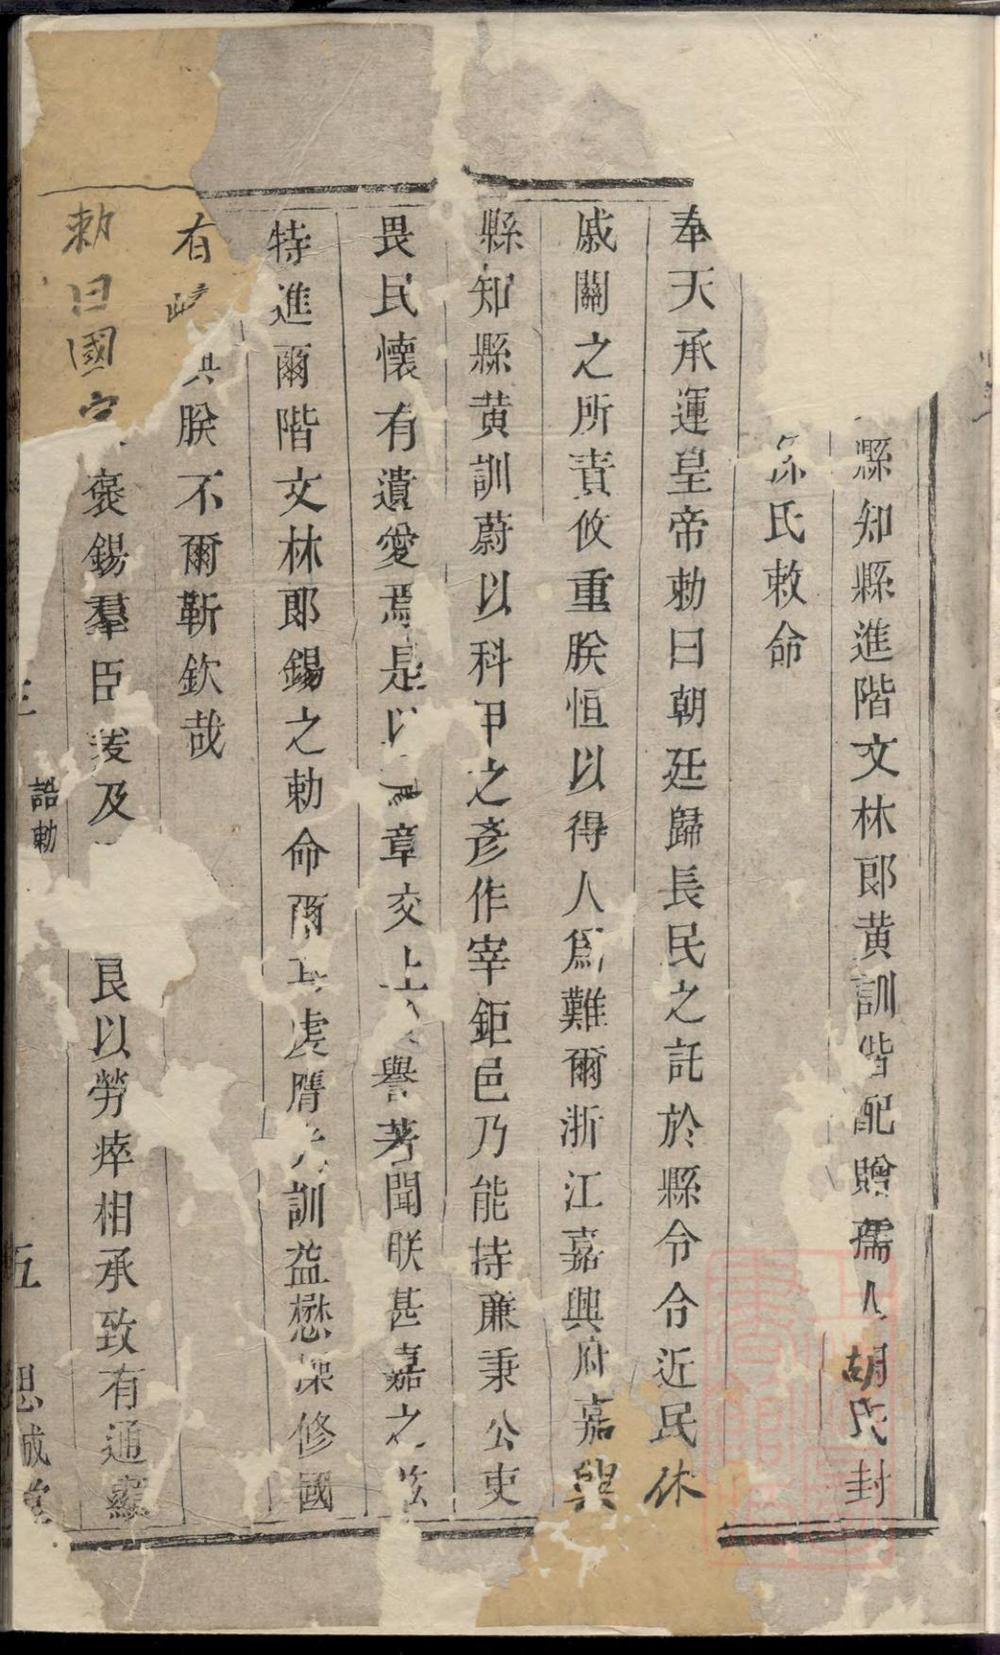 縣知縣進階文林郎黄訓偕配贈孺人胡氏封
氏敕命
奉天承運皇帝勅曰朝廷歸長民之託於縣令令近民休
戚關之所責攸重朕恒以得人爲難爾浙江嘉興府嘉興
縣知縣黄訓蔚以科甲之彥作宰鉅邑乃能持廉秉公吏
畏民懷有遺愛焉是以章交上譽著聞朕甚嘉之兹
特進爾階文林郎錫之勅命爾其虔膺訓益懋深修國
有朕不爾靳欽哉
勅曰國褒錫羣臣及艮以勞瘁相承致有通顯
誥勅
五
思誠堂